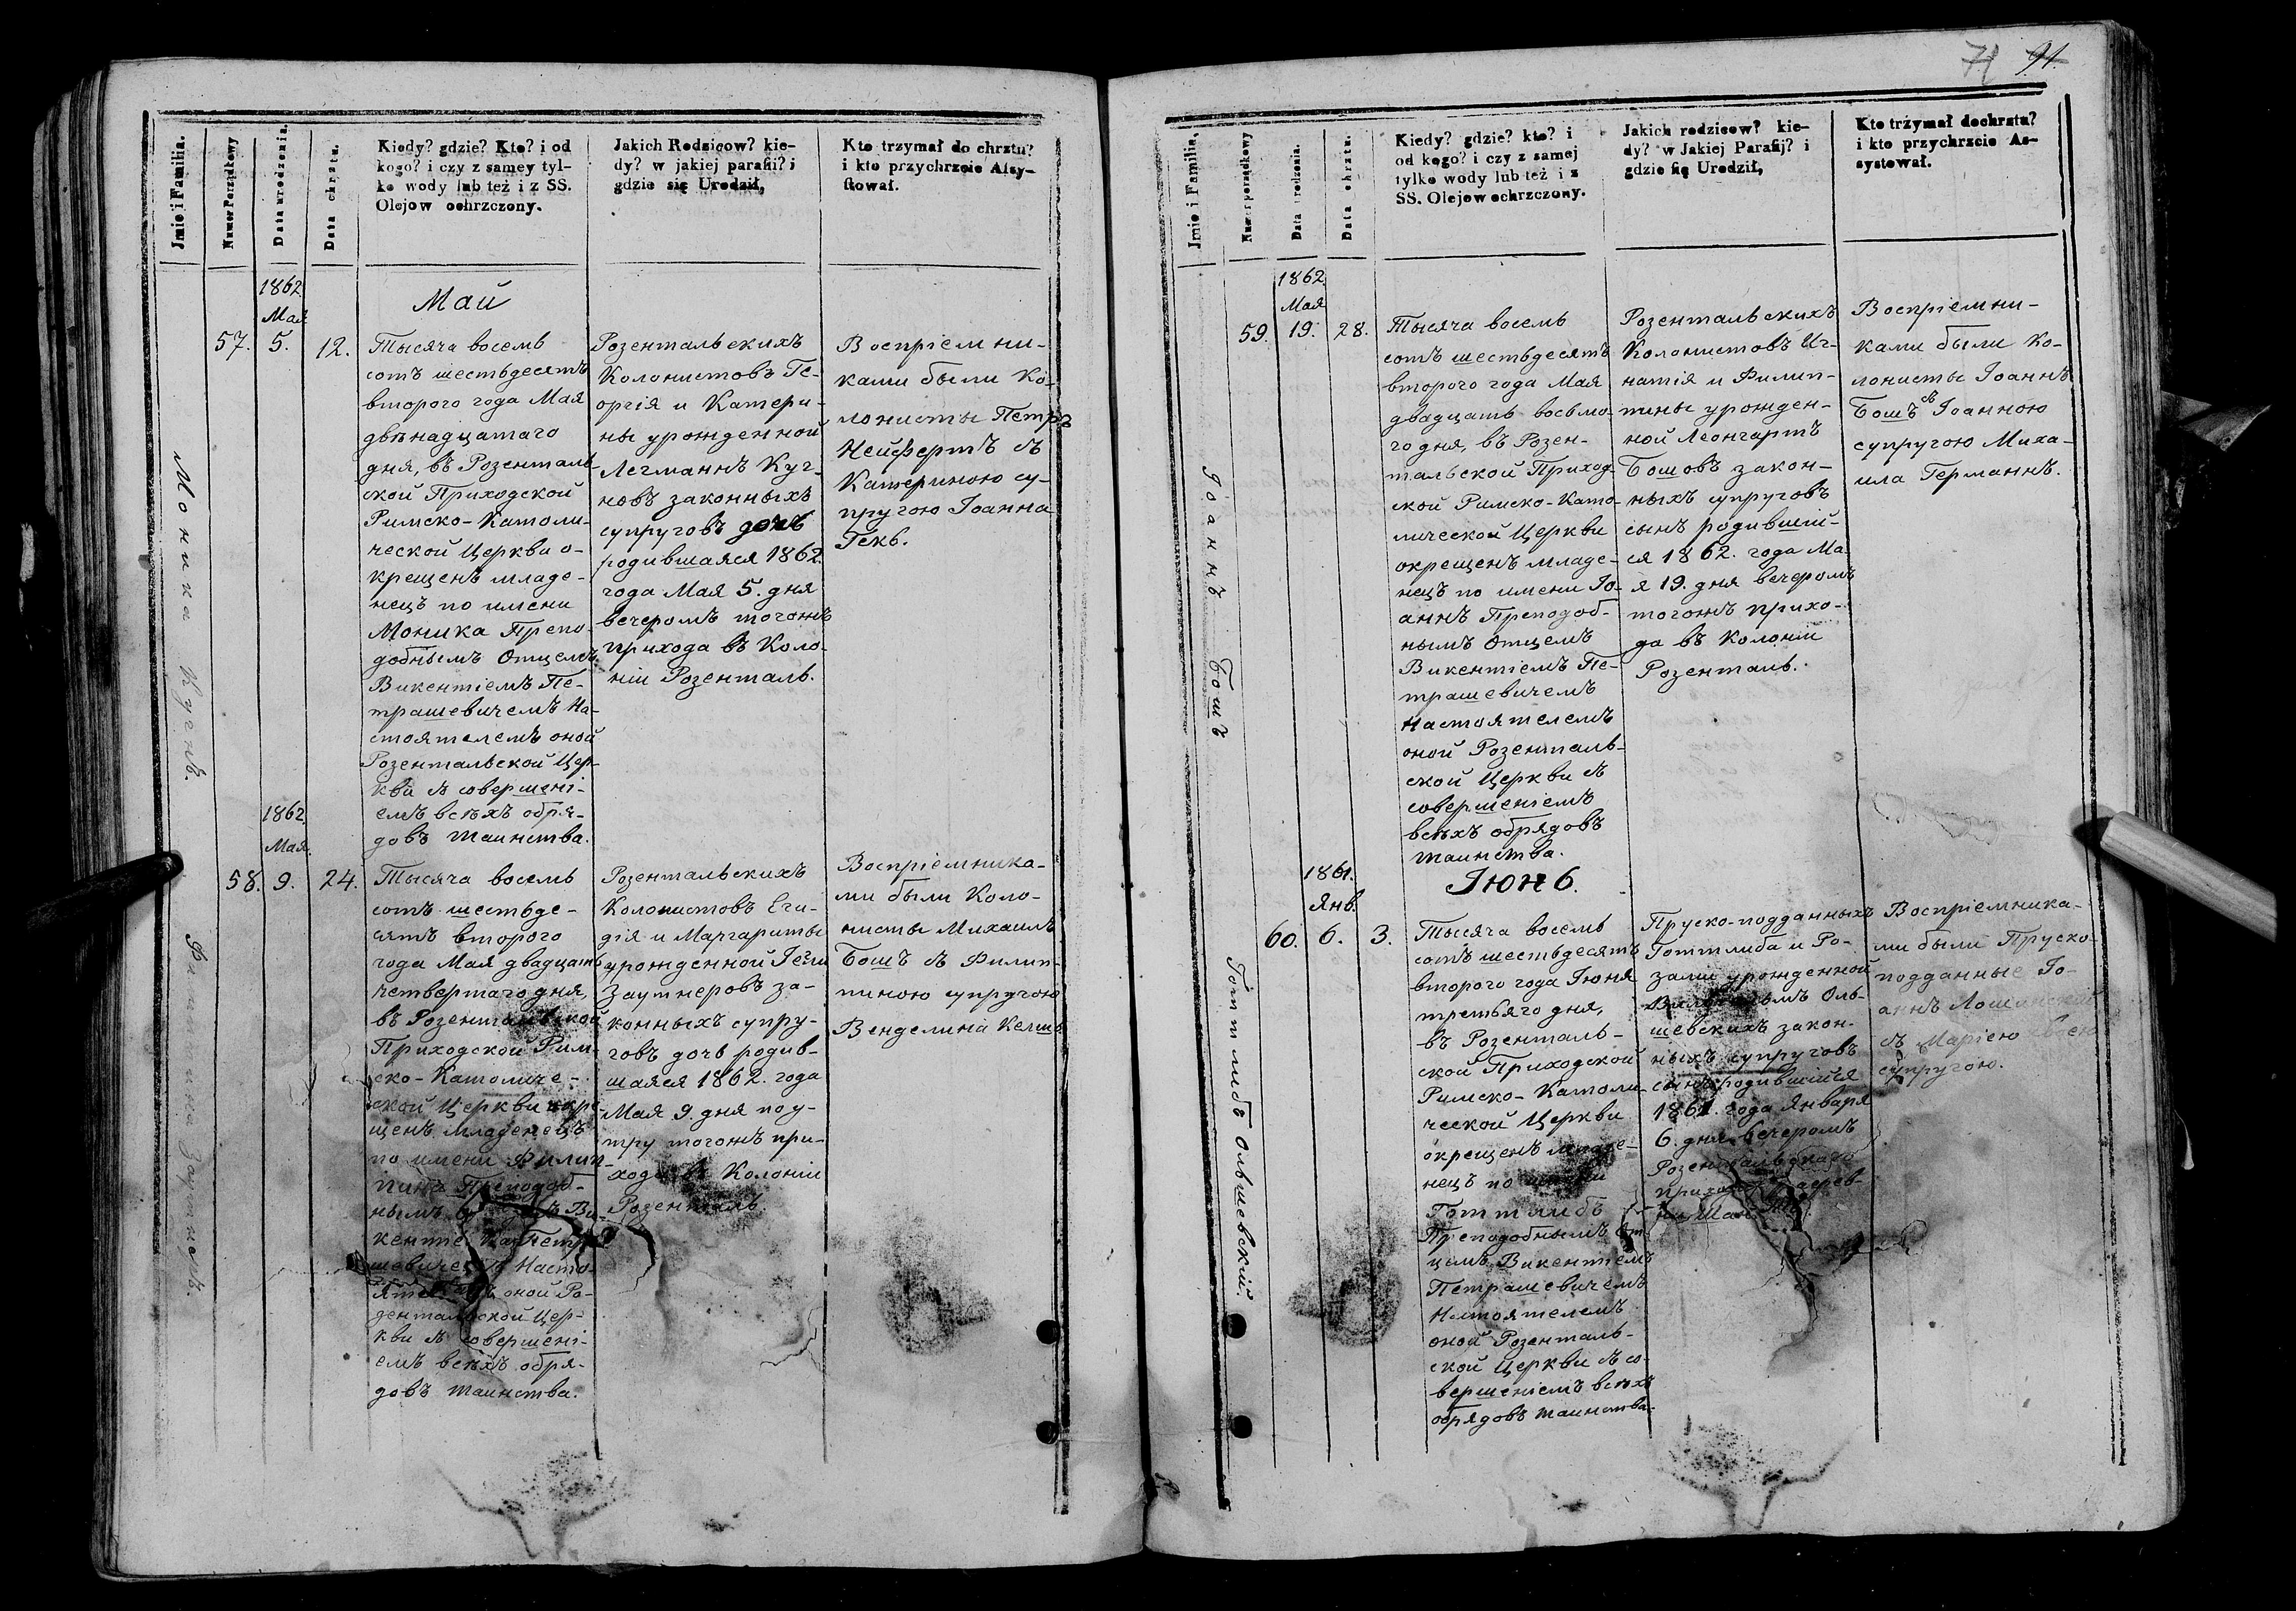 71 91.
Jmie i Familia.
Numer Porządkowy
Data urodzenia.
Data chrztu.
Kiedy? gdzie? Kto? i od
kogo? i czy z samey tyl-
ko wody lub też i z SS.
Olejow ochrzczony.
Jakich Rodzicow? kie-
dy? w jakiej parafii? i
gdzie się Urodził,
Kto trzymał do chrztu?
i kto przychrzcie Assy-
stował.
1862
Мая
Май
57. 5. 12.
Моника Кугнъ.
Тысяча восемь
сотъ шестьдесятъ
втораго года Мая
двѣнадцатаго
дня, въ Розенталь-
ской Приходской
Римско-Католи-
ческой Церкви о-
крещенъ младе-
нецъ по имени
Моника Препо-
добнымъ Отцемъ
Викентіемъ Пе-
трашевичемъ На-
стоятелемъ оной
Розентальской Цер-
кви съ совершені-
емъ всѣхъ обря-
довъ таинства.
Розентальскихъ
Колонистовъ Ге-
оргія и Катери-
ны урожденной
Легманнъ Куг-
новъ законныхъ
супруговъ дочь
родившаяся 1862.
года Мая 5. дня
вечеромъ тогожъ
прихода въ Коло-
ніи Розенталь.
Воспріемни-
ками были Ко-
лонисты Петръ
Нейфертъ съ
Катериною су-
пругою Іоанна
Гекъ.
1862.
Мая.
58. 9. 24.
Филиппина Заутнеръ.
Тысяча восемь
сотъ шестьде-
сятъ втораго
года Мая двадцать
четвертаго дня,
въ Розентальской
Приходской Рим-
ско-Католиче-
ской Церкви окре-
щенъ младенецъ
по имени Филип-
пина Преподоб-
нымъ Ви-
шевичемъ Насто-
оной Ро-
зентальской Цер-
кви съ совершені-
емъ всѣхъ обря-
довъ таинства.
Розентальскихъ
Колонистовъ Еги-
дія и Маргариты
урожденной
Заутнеровъ за-
конныхъ супру-
говъ дочь родив-
шаяся 1862. года
Мая 9. дня по у-
тру тогожъ при-
хода въ Колоніи
Розенталь.
Воспріемника-
ми были Коло-
нисты Михаилъ
Бошъ съ Филип-
пиною супругою
Венделина Келшъ
Jmie i Familia.
Numer porządkowy
Data urodzenia.
Data chrztu.
Kiedy? gdzie? kto? i
od kogo? i czy z samej
tylko wody lub też i z
SS. Olejow ochrzczony.
Jakich rodzicow? kie-
dy? w Jakiej Parafij? i
gdzie się Urodził,
Kto trżymał dochrztu?
i kto przychrzcie As-
systował.
1862
Мая
59. 19. 28.
Іоаннъ Бошъ
Тысяча восемь
сотъ шестьдесятъ
втораго года Мая
двадцать восьма-
го дня, въ Розен-
тальской Приход-
ской Римско-Като-
лической Церкви
окрещенъ младе-
нецъ по имени Іо-
аннъ Преподоб-
нымъ Отцемъ
Викентіемъ Пе-
трашевичемъ
Настоятелемъ
оной Розенталь-
ской Церкви съ
совершеніемъ
всѣхъ обрядовъ
таинства.
Розентальскихъ
Колонистовъ Иг-
натія и Филип-
пины урожден-
ной Леонгартъ
Бошовъ закон-
ныхъ супруговъ
сынъ родивший-
ся 1862. года Ма-
я 19. дня вечеромъ
тогожъ прихо-
да въ Колоніи
Розенталь.
Воспріемни-
ками были Ко-
лонисты Іоаннъ
Бошъ съ Іоанною
супругою Миха-
ила Германнъ.
1861.
Янв.
Іюнь.
60. 6. 3.
Готтлибъ Ольшевскій.
Тысяча восемь
сотъ шестьдесятъ
втораго года Іюня
третьяго дня,
въ Розенталь-
ской Приходской
Римско-Католи-
ческой Церкви
окрещенъ младе-
нецъ по имени
Готтлибъ
Преподобнымъ От-
цемъ Викентіемъ
Петрашевичемъ
Настоятелемъ
оной Розенталь-
ской Церкви съ со-
вершеніемъ всѣхъ
обрядовъ таинства.
Пруско-подданныхъ
Готтлиба и Ро-
заліи урожденной
Оль-
шевскихъ закон-
ныхъ супруговъ
сынъ родившийся
1861. года Января
6. дня вечеромъ
Розентальскаго
прихода
Воспріемника-
ми были Пруско-
подданные Іо-
аннъ
съ Маріею
супругою.